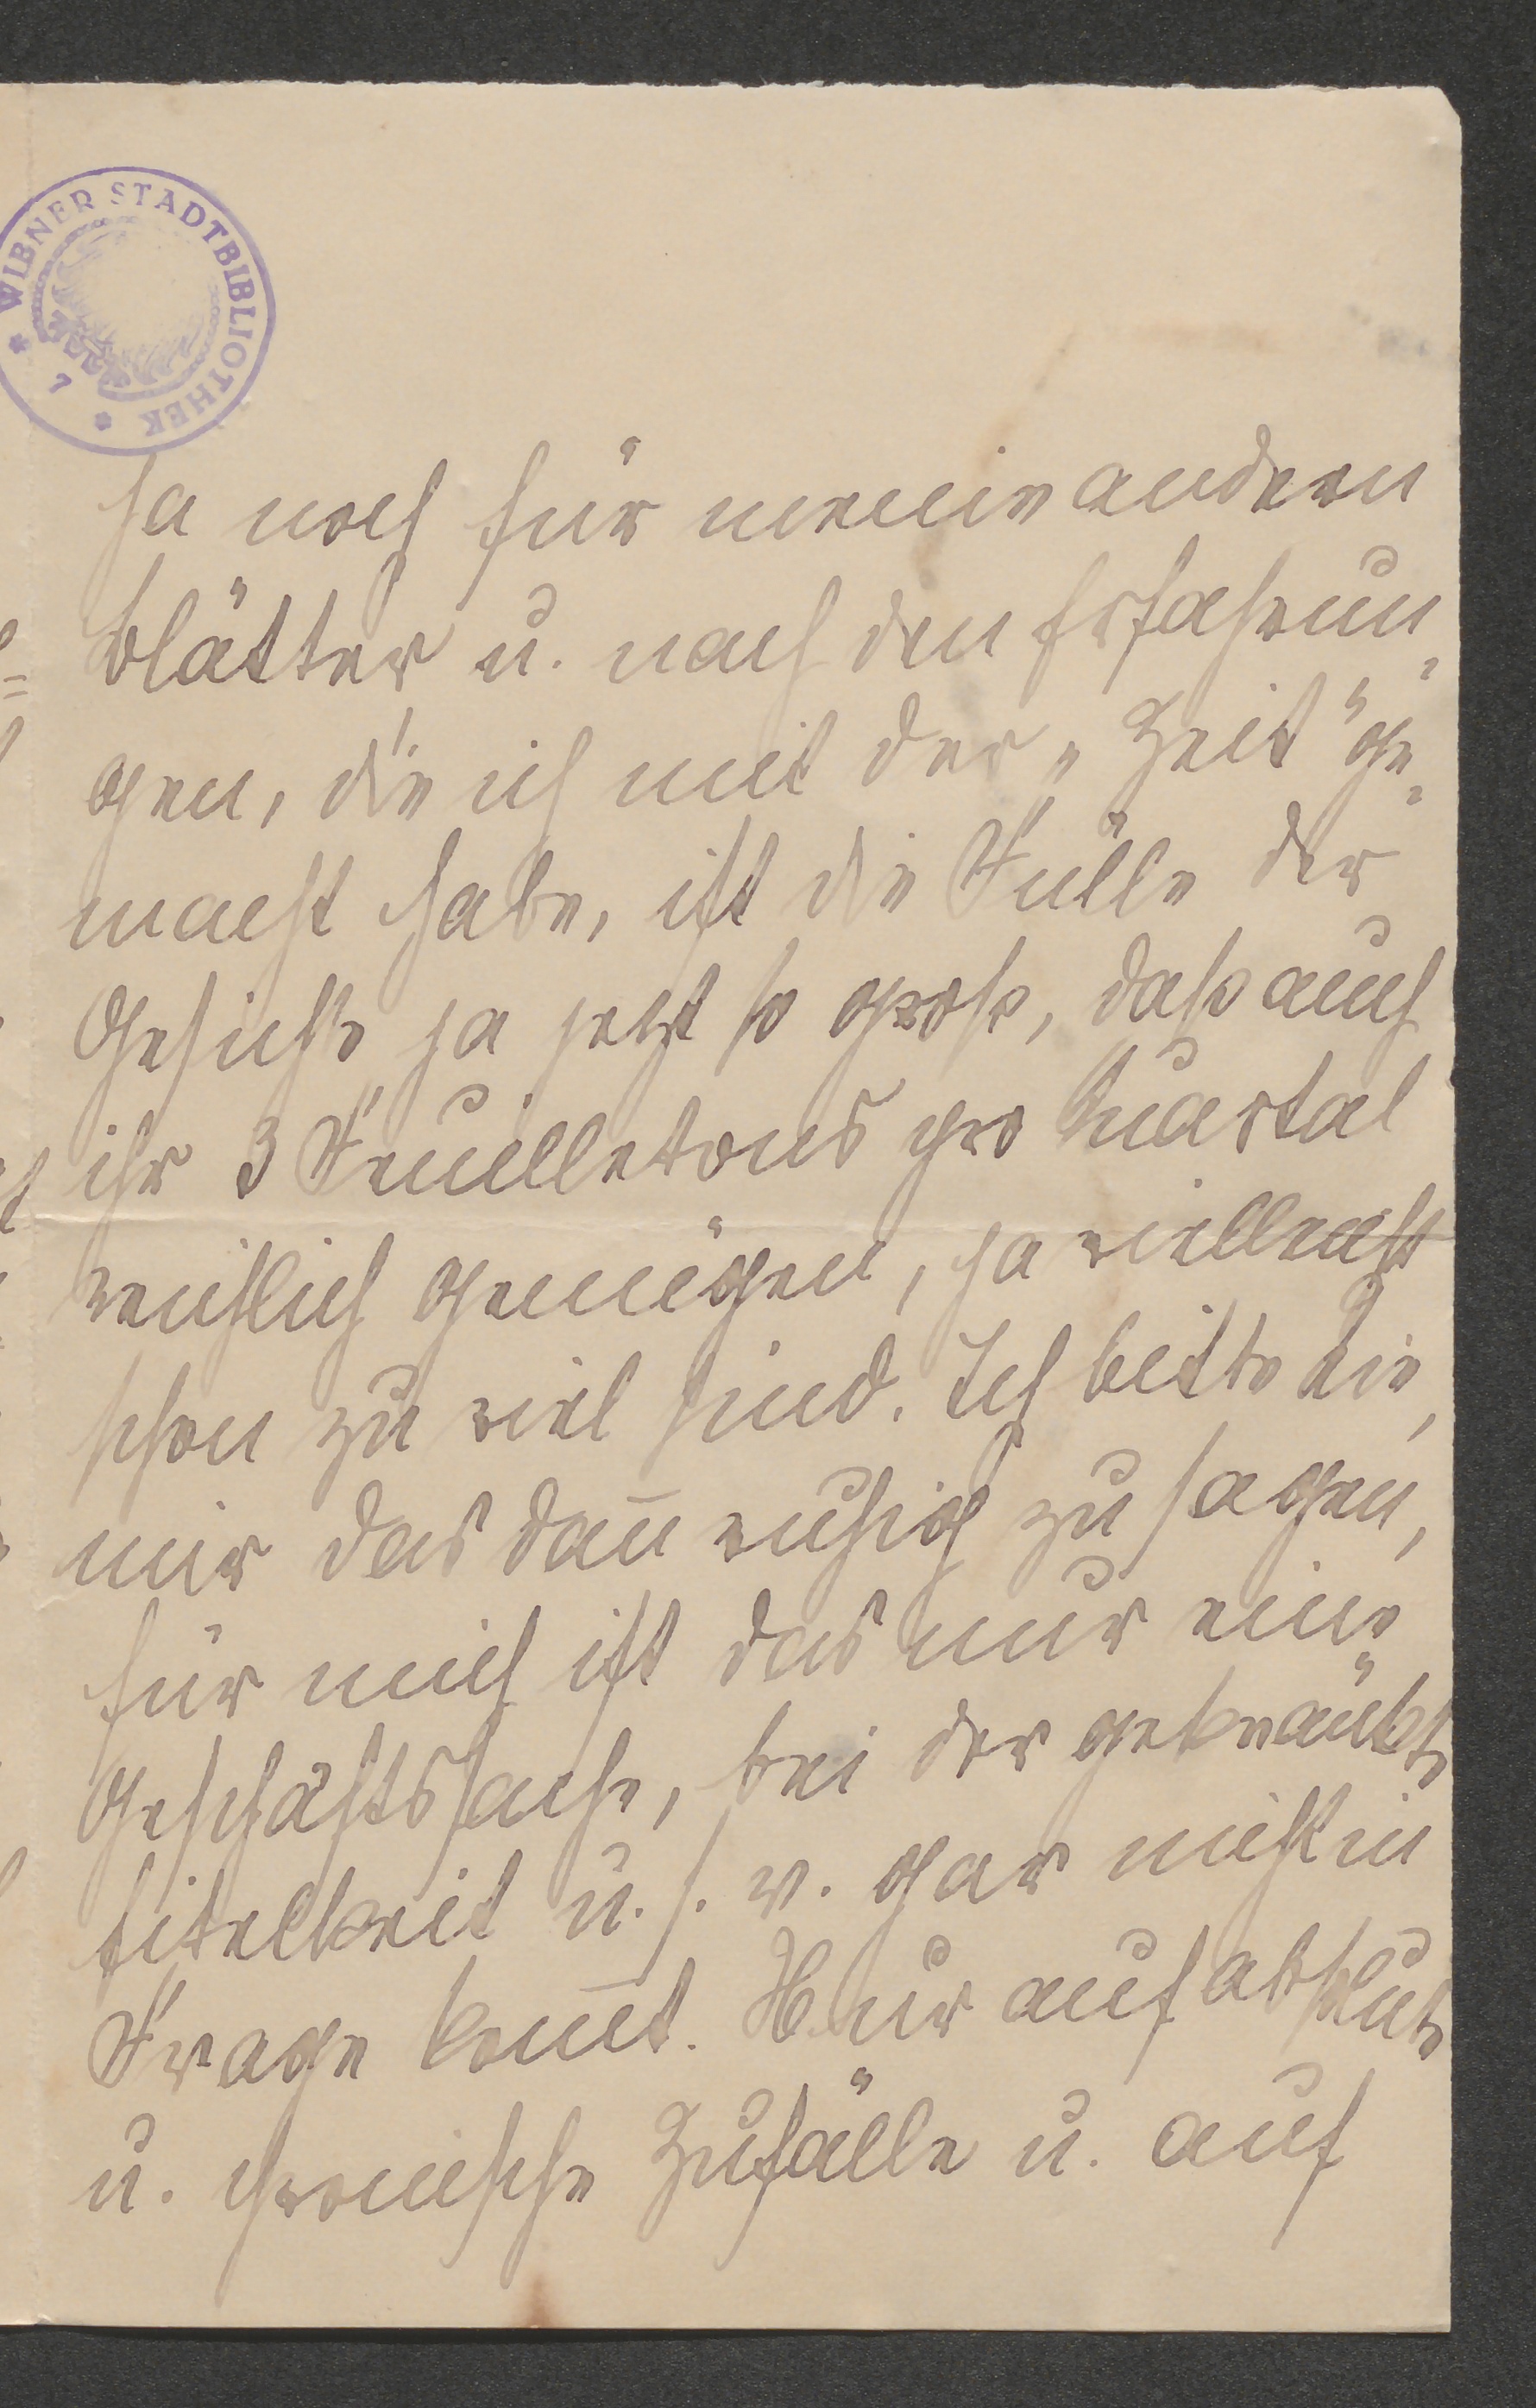 WIENER STADTBIBLIOTHEK
* 7 *
ja noch für meine andern
Blätter u. nach den Erfahrun-
gen, die ich mit der „Zeit" ge-
macht habe, ist die Fülle der
Gesichte ja jetzt so groß, daß auch
ihr 3 Feuilletons pro Quartal
reichlich genügen, ja vielleicht
schon zu viel sind. Ich bitte Sie,
mir das dan̄ ruhig zu sagen,
für mich ist das nur eine
Geschäftssache, bei der gekränkte
Eitelkeit u. s. w. gar nicht in
Frage kom̄t. Nur auf absolute
u. chronische Zufälle u. auf